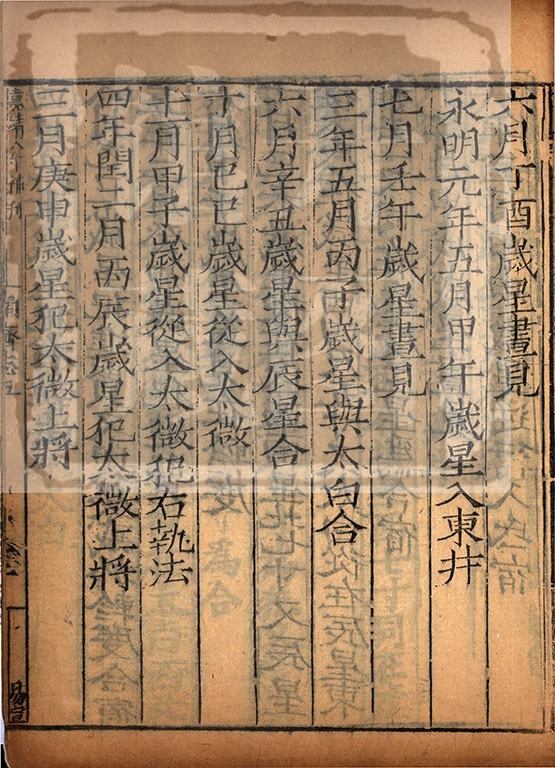 六月丁酉歲星晝見
永明元年五月甲午歲星入東井
七月壬午歲星晝見
三年五月丙子歲星與太白合
六月辛丑歲星與辰星合
十月己巳歲星從入太微
十一月甲子歲星從入太微犯右執法
四年閏二月丙辰歲星犯太微上將
三月庚申歲星犯太微上將